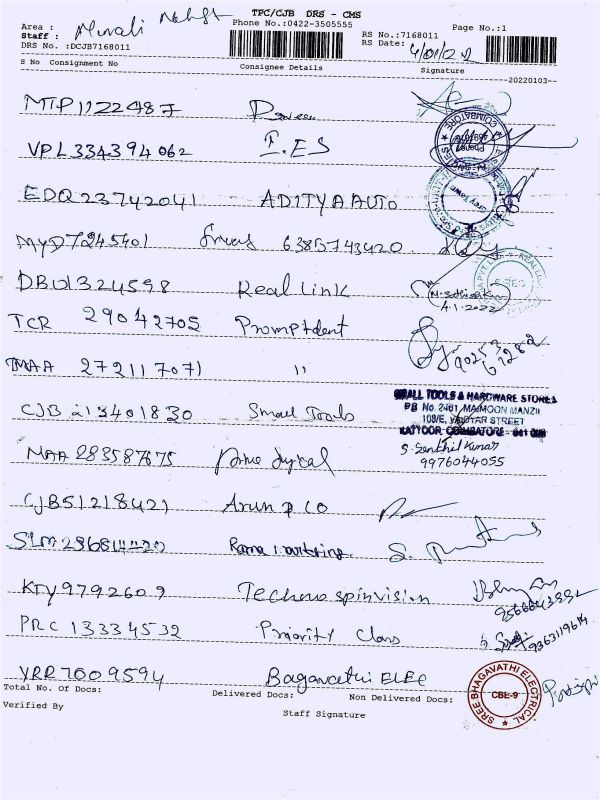 TPC/CJB DRS - CMS
Area :
Phone No.:0422-3505555
Page No.:1
Staff : Murali
RS No.:7168011
DRS No. :DCJB7168011
RS Date: 4/01/22
S No Consignment No Consignee Details Signature
--20220103--
MTP1122487
VPL334394062 I.ES
EDQ23742041 ADITYA AUTO
MYD7245401 6385743420
DBU1324598 Real Link
N. Sathish K
4-1-2022
TCR 29042705 Promptdent
90253
61282
MAA 272117071 "
SMALL TOOLS & HARDWARE STORES
PB No. 2461, MAIMOON MANZIL
108/E, STREET
KATTOOR COIMBATORE - 641 009
CJB 213401830 Small Tools
S. Senthil Kumar
9976044055
MAA 283587675
CJB51218421 Arun & CO
SLM296814420 Rama
KTY9792609 Techno spinvision
PRC 13334532 Priority Class
9363119614
VRR7009594 Bagavathi ELEC
SREE BHAGAVATHI ELECTRICAL
CBE-9
Total No. of Docs: Delivered Docs: Non Delivered Docs:
Verified By Staff Signature